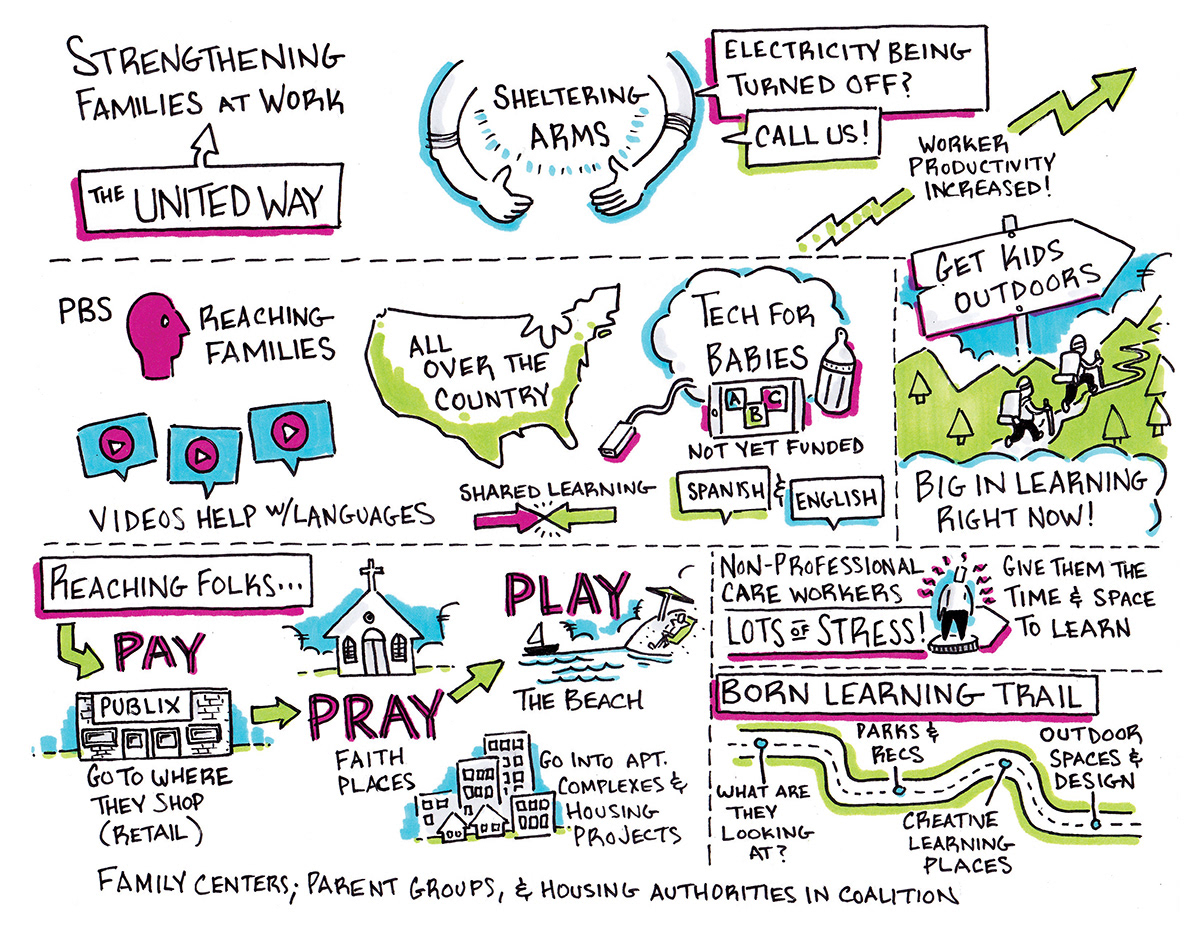 STRENGTHENING
FAMILIES AT WORK
THE UNITED WAY
SHELTERING
ARMS
ELECTRICITY BEING
TURNED OFF?
CALL US!
WORKER
PRODUCTIVITY
INCREASED!
PBS
REACHING
FAMILIES
VIDEOS HELP W/LANGUAGES
ALL
OVER THE
COUNTRY
SHARED LEARNING
TECH FOR
BABIES
A
B
C
NOT YET FUNDED
SPANISH & ENGLISH
GET KIDS
OUTDOORS
BIG IN LEARNING
RIGHT NOW!
REACHING FOLKS...
PAY
PUBLIX
GO TO WHERE
THEY SHOP
(RETAIL)
PRAY
FAITH
PLACES
PLAY
THE BEACH
GO INTO APT.
COMPLEXES &
HOUSING
PROJECTS
NON-PROFESSIONAL
CARE WORKERS
LOTS OF STRESS!
GIVE THEM THE
TIME & SPACE
TO LEARN
BORN LEARNING TRAIL
WHAT ARE
THEY
LOOKING
AT?
PARKS &
RECS
CREATIVE
LEARNING
PLACES
OUTDOOR
SPACES &
DESIGN
FAMILY CENTERS; PARENT GROUPS, & HOUSING AUTHORITIES IN COALITION